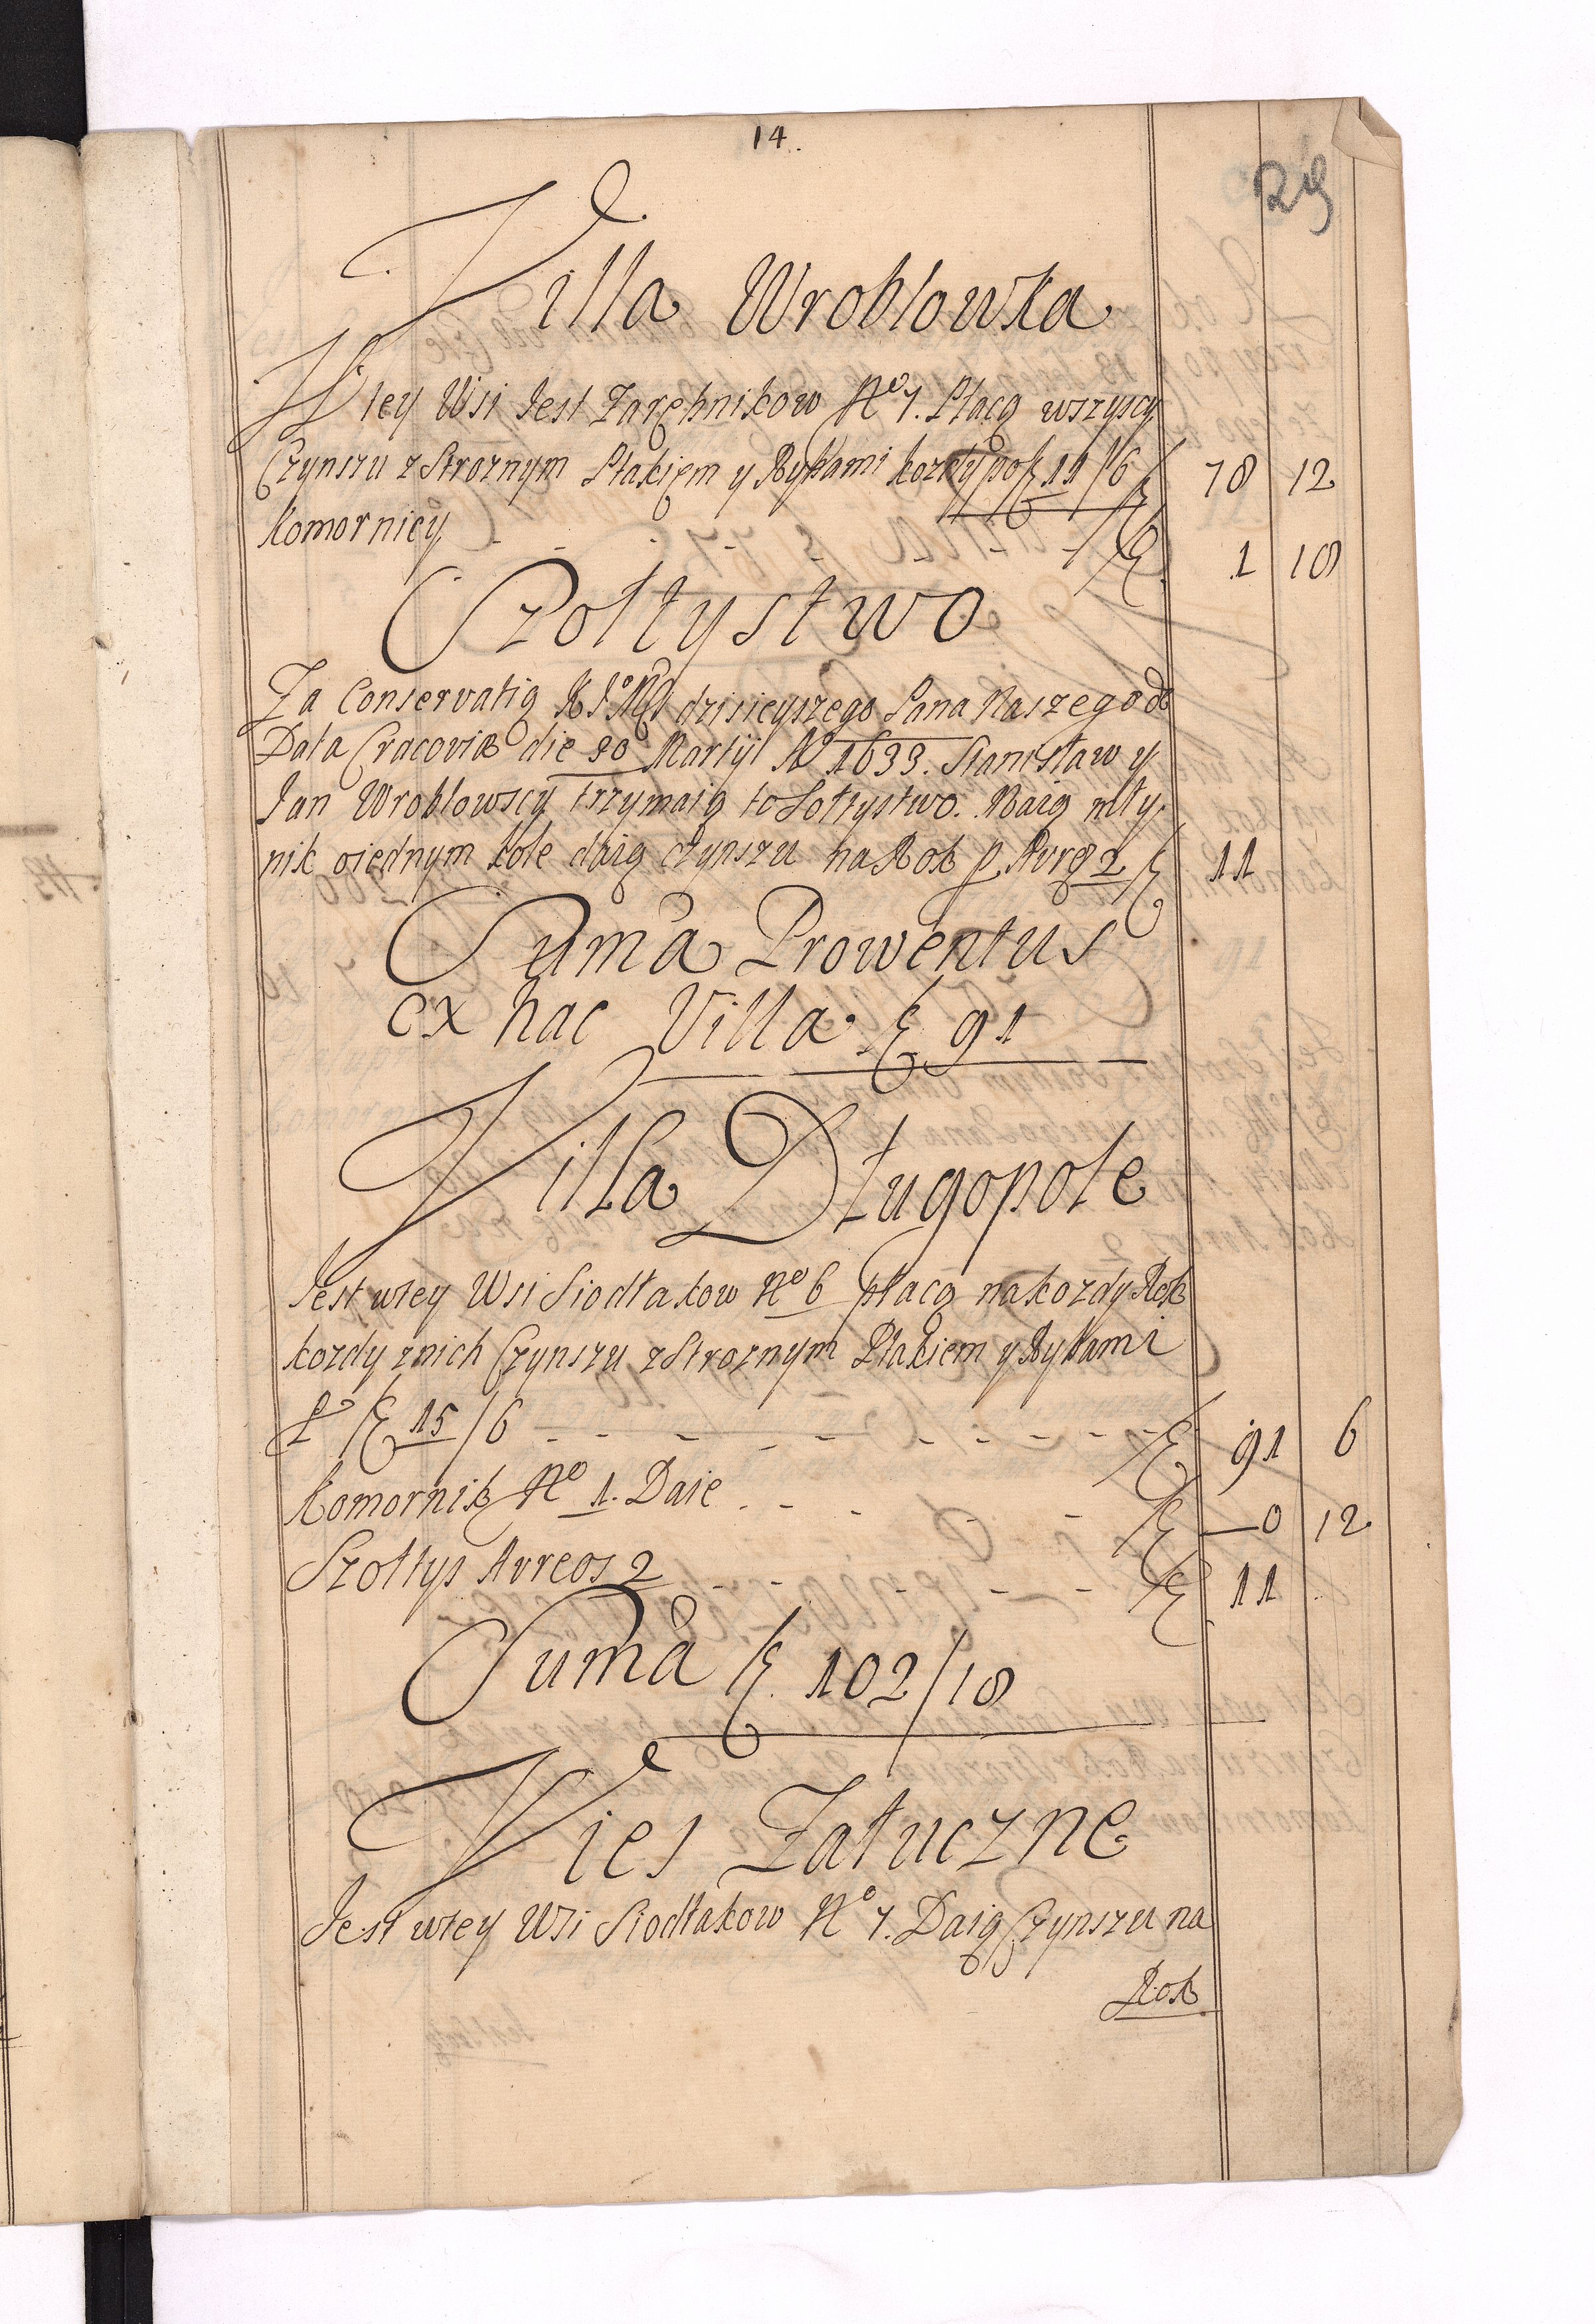 14.
29
Villa Wroblowka
W tey Wsi Jest Zarębnikow No 7. Płacą wszyscy
Czynszu z Stroznym Ptakiem y Rykami kozdy po f 11/6 f 78 12
Komornicy - - - - - f 1 18
Szołtystwo
Za Conservatią KJoMCi dzisieyszego Pana Naszego de
Data Cracoviæ die 20 Martij Ao 1633. Stanisław y
Jan Wroblowscy trzymaią to Sołtystwo. Maią młÿ,
nik o iednym kole daią czynszu na Rok p. Aure 2 f 11
Suma Prowentus
ex hac Villa. f 91
Villa Długopole
Jest w tey Wsi Siodłakow No 6 płacą na kozdy Rok
kozdy z nich Czynszu z Stroznym Ptakiem y Rykami
P f 15/6 - - - - - - - - f 91 6
Komornik No 1. Daie - - - - f —0 12
Szołtys Aureos 2 - - - - - f 11
Suma f. 102/18
Wies Załuczne
Jest w tey Wsi Siodłakow No 7. Daią Czynszu na
Rok